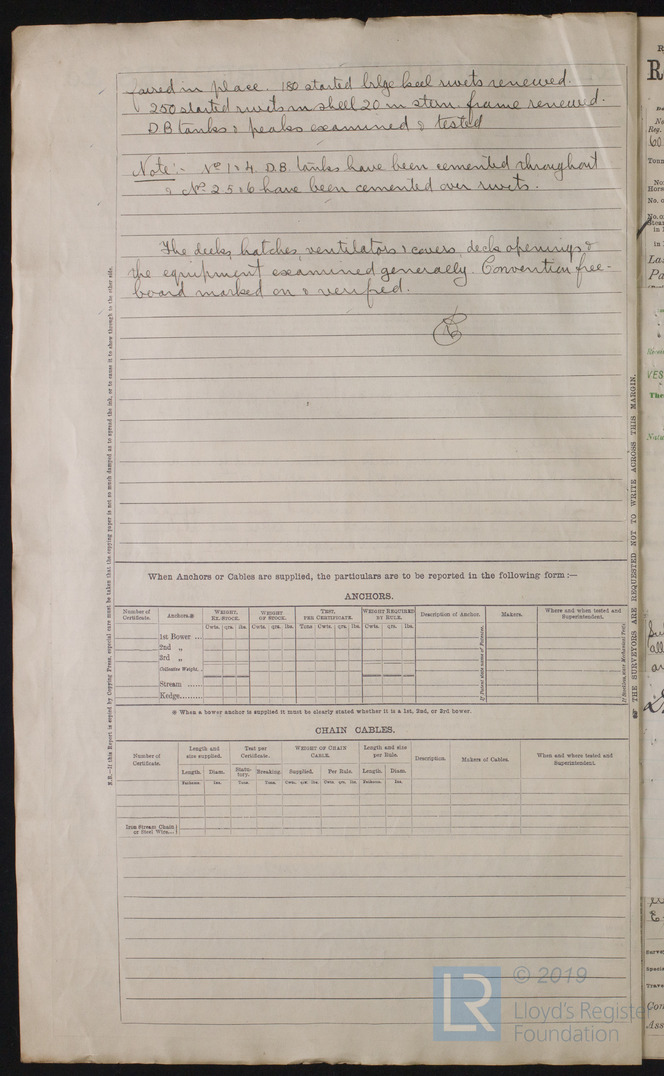 faired in place. 180 started bilge keel rivets renewed.
250 started rivets in shell 20 in stern frame renewed.
D.B tanks & peaks examined & tested
Note:- Nos 1 & 4 D.B. tanks have been cemented throughout
& Nos 2 5 & 6 have been cemented over rivets.
The decks, hatches, ventilators & covers, deck openings &
the equipment examined generally. Convention free-
board marked on & verified.
When Anchors or Cables are supplied, the particulars are to be reported in the following form :—
ANCHORS.
Number of Certificate. Anchors.* WEIGHT, EX. STOCK. WEIGHT OF STOCK. TEST, PER CERTIFICATE. WEIGHT REQUIRED BY RULE. Description of Anchor. Makers. Where and when tested and Superintendent.
Cwts. qrs. lbs. Cwts. qrs. lbs. Tons Cwts. qrs. lbs. Cwts. qrs. lbs.
1st Bower ...
2nd „
3rd „
Collective Weight.
Stream ......
Kedge........
If Patent state name of Patentee.
* When a bower anchor is supplied it must be clearly stated whether it is a 1st, 2nd, or 3rd bower.
CHAIN CABLES.
Number of Certificate. Length and size supplied. Test per Certificate. WEIGHT OF CHAIN CABLE. Length and size per Rule. Description. Makers of Cables. When and where tested and Superintendent.
Length. Diam. Statutory. Breaking. Supplied. Per Rule. Length. Diam.
Fathoms. Ins. Tons. Tons. Cwts. qrs. lbs. Cwts. qrs. lbs. Fathoms. Ins.
Iron Stream Chain
or Steel Wire...
N.B.—If this Report is copied by Copying Press, especial care must be taken that the copying paper is not so much damped as to spread the ink, or to cause it to show through to the other side.
THE SURVEYORS ARE REQUESTED NOT TO WRITE ACROSS THIS MARGIN.
© 2019
LR
Lloyd's Register
Foundation